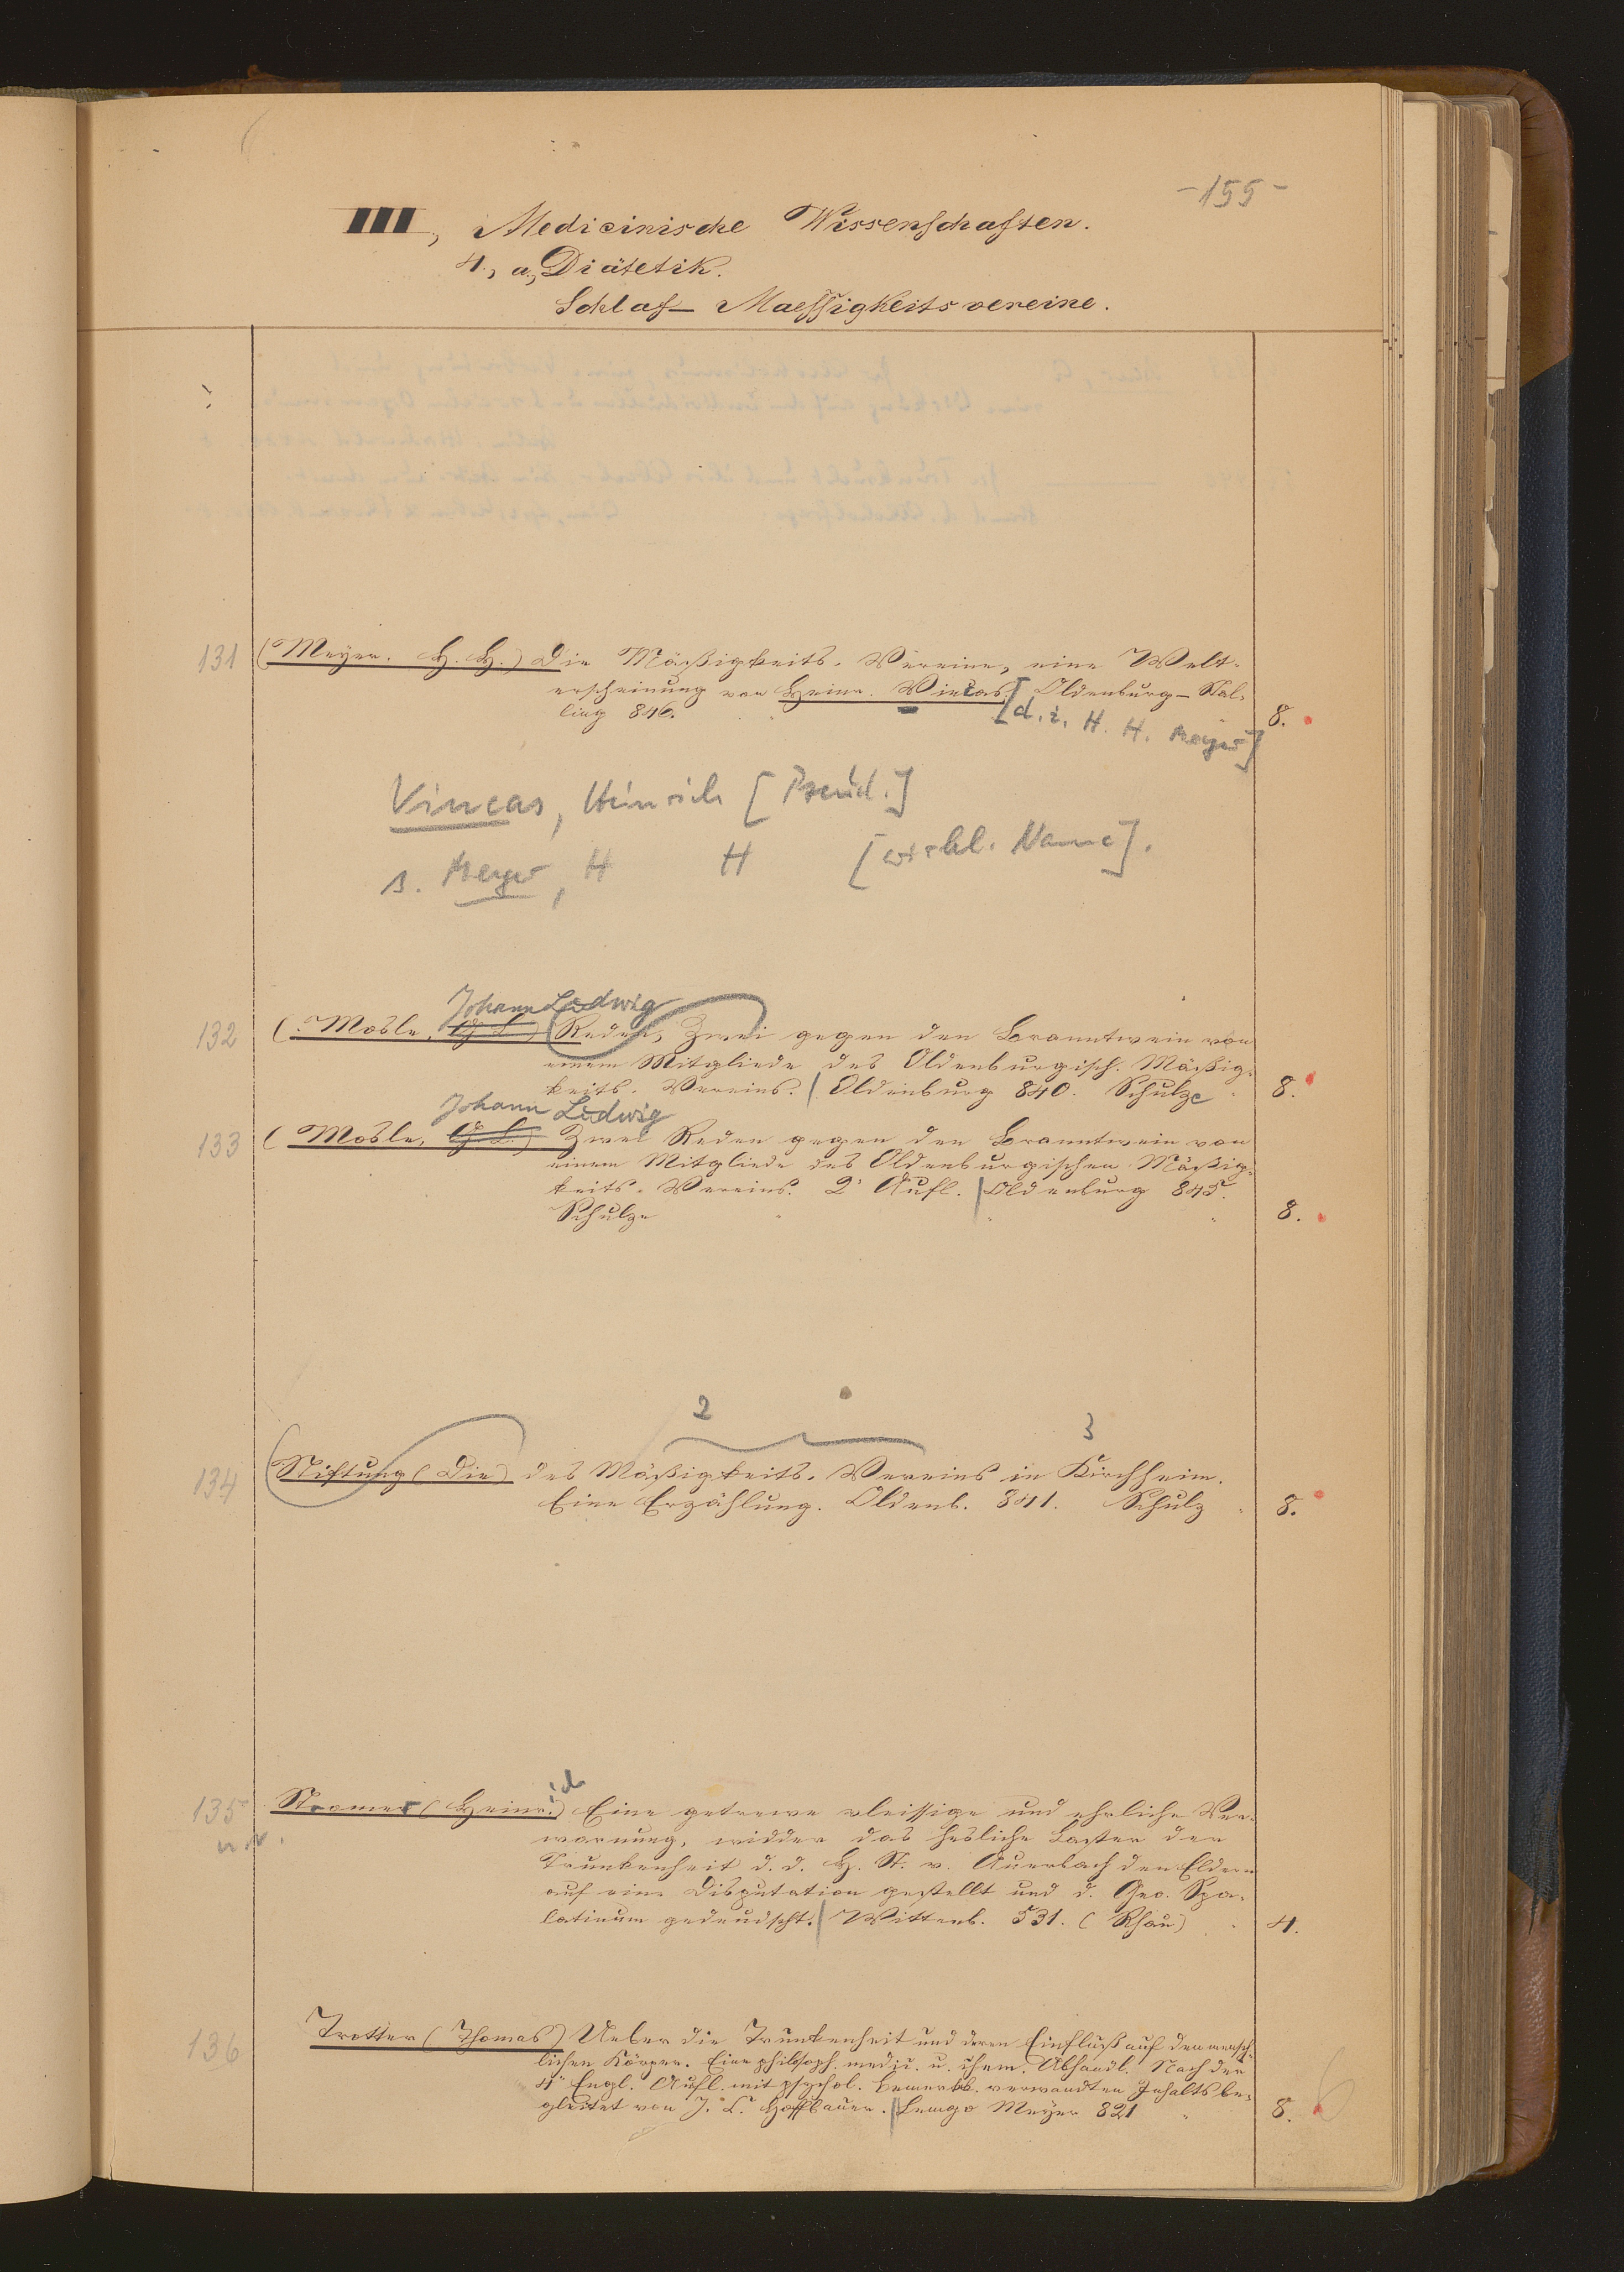 -155-
III, Medicinische Wissenschaften.
4., a., Diätetik.
Schlaf- Maessigkeitsvereine.
131 (Meyer. H. H.) Die Mäßigkeits-Vereine, eine Welt-
erscheinung von Heinr. Vincas. Oldenburg-Stal-
ling 846. 8.
[d. i. H. H. Meyer]
Vincas, Heinrich [Pseud.]
s. Meyer, H H [wirkl. Name].
Johann Ludwig
132 (Mosle, Reden, Zwei gegen den Branntwein von
einem Mitgliede des Oldenburgisch. Mäßig-
keits-Vereins. | Oldenburg 840. Schulze 8.
Johann Ludwig
133 (Mosle, Zwei Reden gegen den Branntwein von
einem Mitgliede des Oldenburgischen Mäßig-
keits-Vereins. 2' Aufl. | Oldenburg 845.
Schulze 8.
2 3
134 Stiftung (Die) des Mäßigkeits-Vereins in Kirchheim.
Eine Erzählung. Oldenb. 841. Schulz 8.
ich
135 Stromer (Heinr.) Eine getrewe vleissige und ehrliche Ver-
warnung, widder das hesliche Laster der
Trunkenheit d. d. H. St. v. Auerbach den Eldern
auf eine Disputation gestellt und d. Geo. Spa-
latinum gedeudscht. | Wittenb. 531. (Rhau) 4.
136 Trotter (Thomas) Ueber die Trunkenheit und deren Einfluß auf den mensch-
lichen Körper. Eine philosoph. mediz. u. chem. Abhandl. Nach der
4" Engl. Aufl. mit psychol. Bemerkb. verwandten Inhalts be-
gleitet von J. C. Hoffbauer. | Lemgo Meyer 821 8.